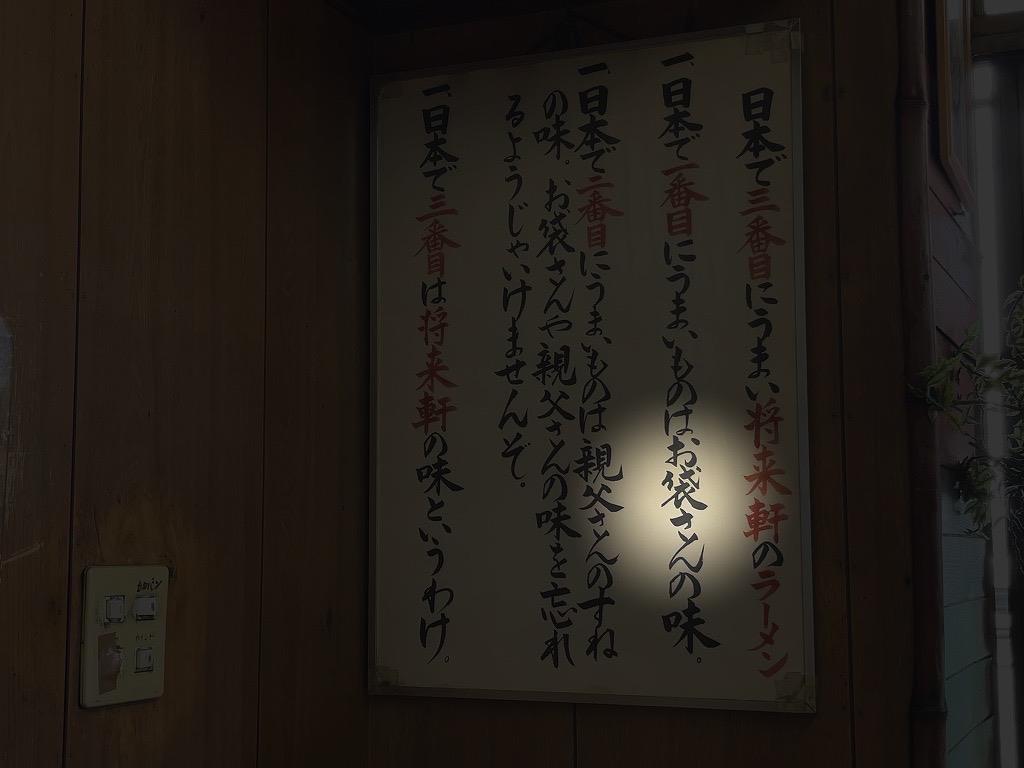 日本で三番目にうまい将来軒のラーメン
一、日本で一番目にうまいものはお袋さんの味。
一、日本で二番目にうまいものは親父さんのすね
の味。お袋さんや親父さんの味を忘れ
るようじゃいけませんぞ。
一、日本で三番目は将来軒の味というわけ。